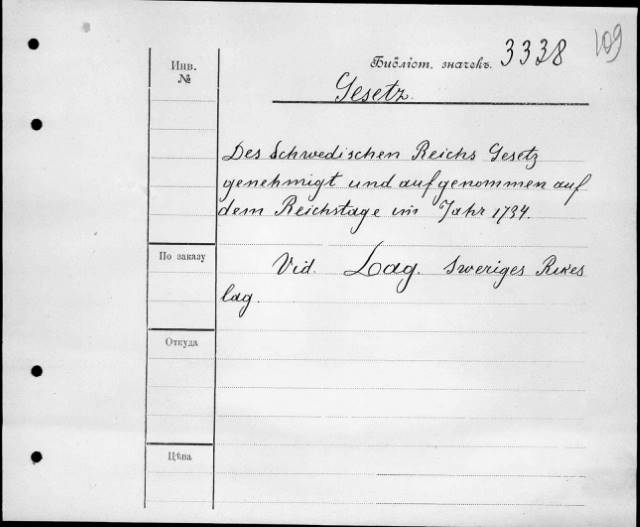 109
Инв.
№
Библіот. значекъ. 3338
Gesetz.
Des Schwedischen Reichs Gesetz
genehmigt und aufgenommen auf
dem Reichstage im Jahr 1734.
По заказу
Vid. Lag. Sweriges Rikes
lag.
Откуда
Цѣна